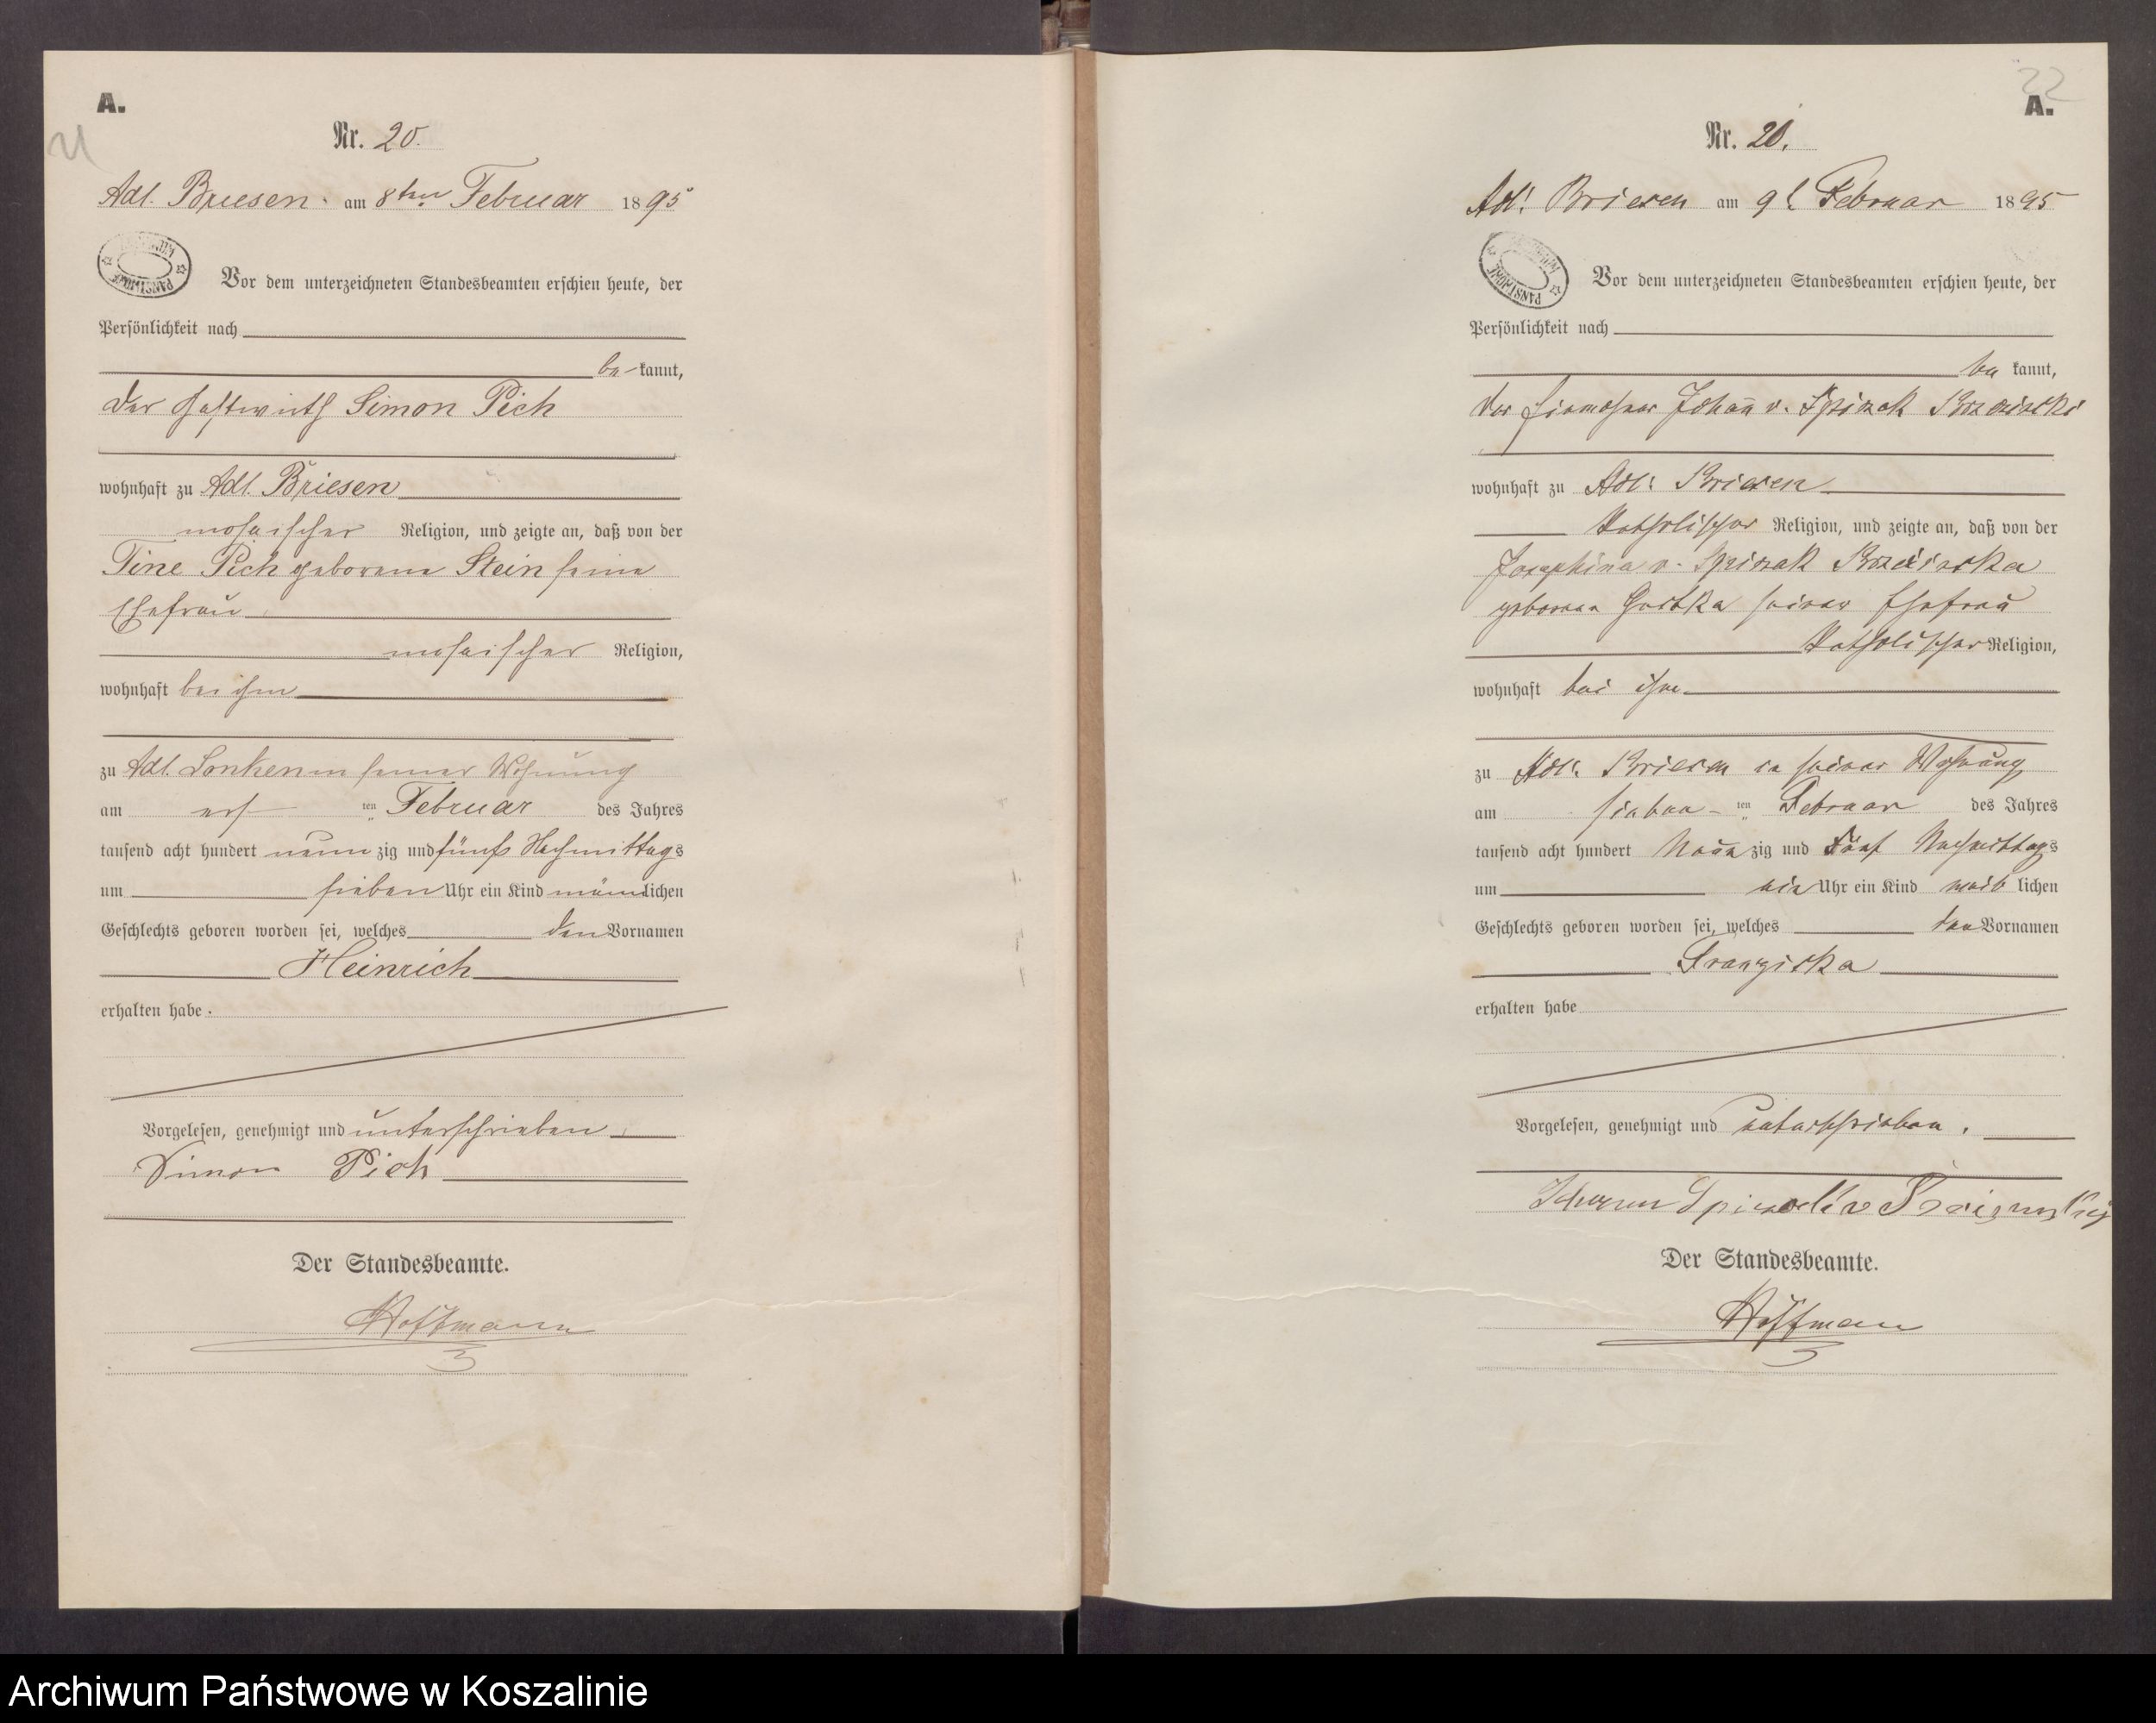 A.
21
Nr. 20.
Adl. Briesen. am 8ten Februar 1895
Vor dem unterzeichneten Standesbeamten erschien heute, der
Persönlichkeit nach
be-kannt,
der Gastwirth Simon Pich
wohnhaft zu Adl. Briesen
mosaischer Religion, und zeigte an, daß von der
Tine Pich geborene Stein seine
Ehefrau,
mosaischer Religion,
wohnhaft bei ihm
zu Adl. Lonken in seiner Wohnung
am ten Februar des Jahres
tausend acht hundert neunzig und fünf Nachmittags
um sieben Uhr ein Kind männlichen
Geschlechts geboren worden sei, welches den Vornamen
Heinrich
erhalten habe.
Vorgelesen, genehmigt und unterschrieben
Simon Pich
Der Standesbeamte.
Hoffmann
22
A.
Nr. 20.
Adl. Briesen am 9t. Februar 1895
Vor dem unterzeichneten Standesbeamten erschien heute, der
Persönlichkeit nach
be kannt,
der Johann v. Spiczak
wohnhaft zu Adl. Briesen
katholischer Religion, und zeigte an, daß von der
Josephina v. Spiczak
geborene seiner Ehefrau
katholischer Religion,
wohnhaft bei ihm
zu Adl. Briesen in seiner Wohnung
am sieben ten Februar des Jahres
tausend acht hundert Neunzig und Fünf Nachmittags
um ein Uhr ein Kind weiblichen
Geschlechts geboren worden sei, welches den Vornamen
Franziska
erhalten habe
Vorgelesen, genehmigt und unterschrieben.
Der Standesbeamte.
Hoffmann
Archiwum Państwowe w Koszalinie